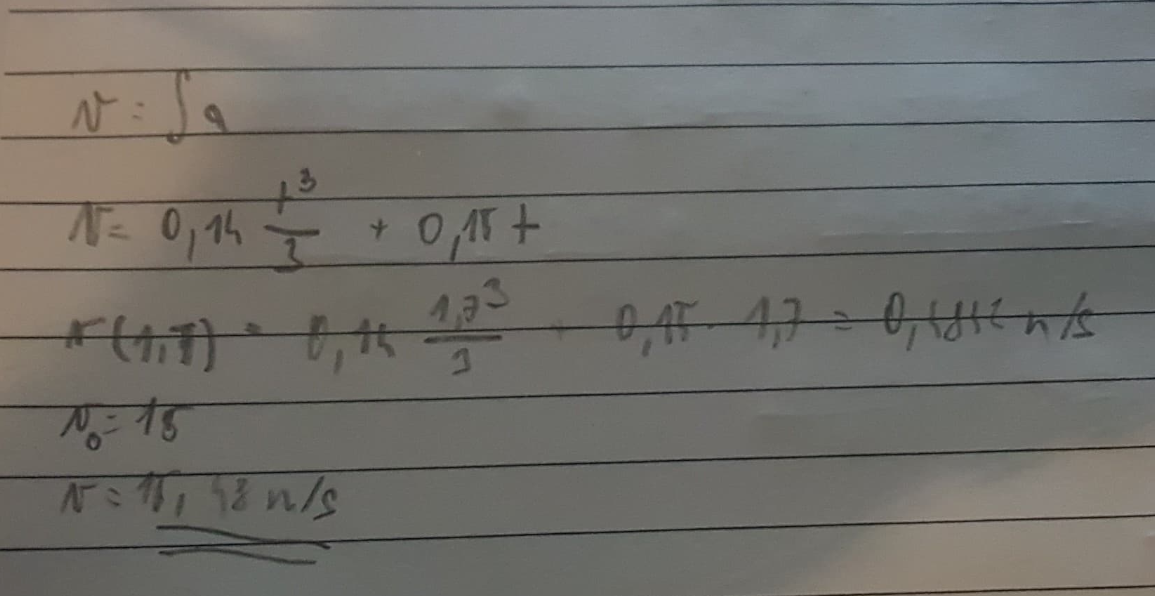 v = ∫a
v = 0,14 t³/3 + 0,15 t
v(1,7) = 0,14 1,7³/3 + 0,15 · 1,7 = m/s
v₀ = 15
v = 15,48 m/s